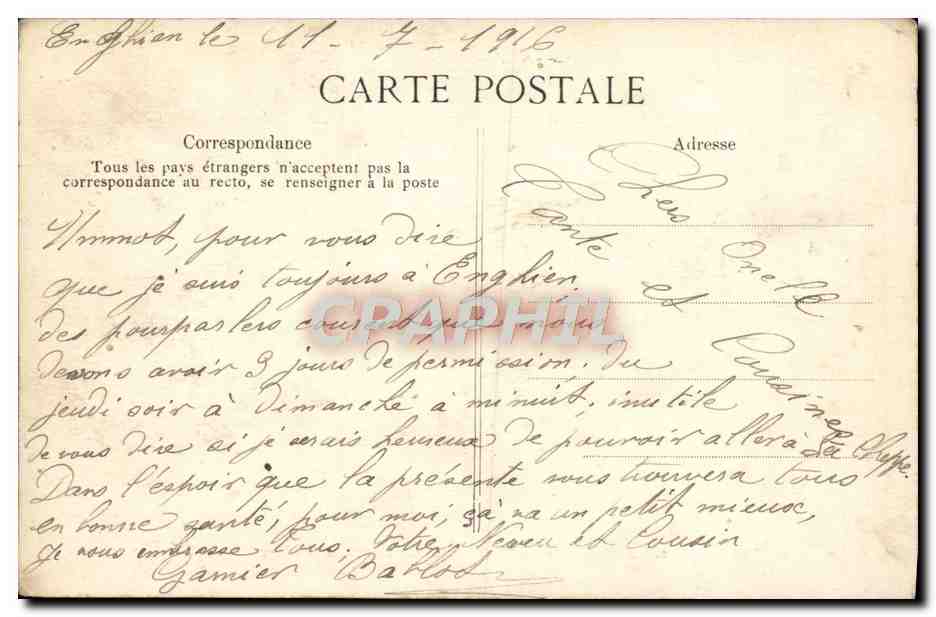 Enghien le 11 - 7 - 1916
CARTE POSTALE
Correspondance
Tous les pays étrangers n'acceptent pas la
correspondance au recto, se renseigner à la poste
Adresse
Chers Oncle
Tante et Cousines
Un mot, pour vous dire
que je suis toujours à Enghien,
des pourparlers courent que nous
devons avoir 3 jours de permission. du
jeudi soir à Dimanche à minuit; inutile
de vous dire si je serais heureux de pouvoir aller à La Cheppe.
Dans l'espoir que la présente vous trouvera tous
en bonne santé, pour moi, çà va un petit mieux,
je vous embrasse tous, Votre Neveu et Cousin
Garnier
CPAPHIL